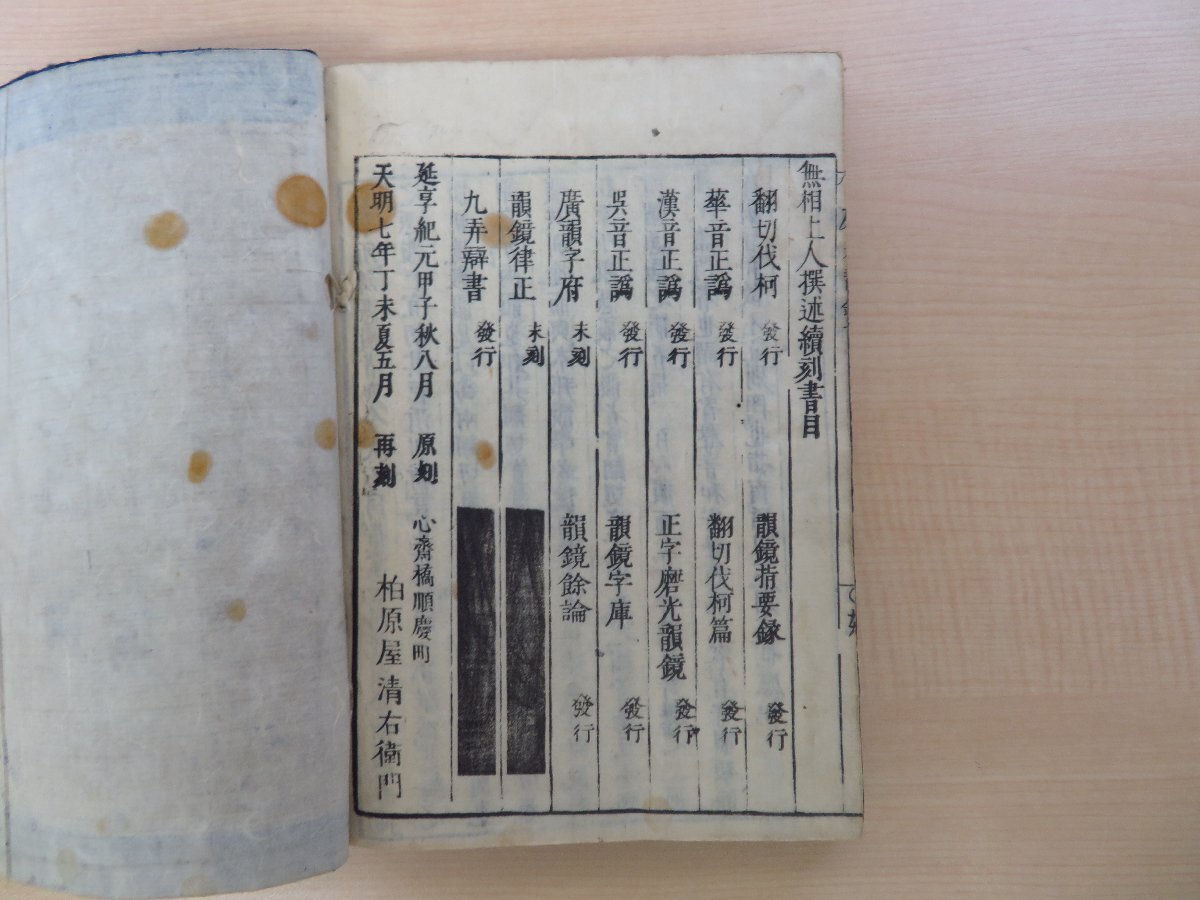 無相上人撰述續刻書目
翻切伐柯 發行 韻鏡指要錄 發行
華音正譌 發行 翻切伐柯篇 發行
漢音正譌 發行 正字磨光韻鏡 發行
吳音正譌 發行 韻鏡字庫 發行
廣韻字府 未刻 韻鏡餘論 發行
韻鏡律正 未刻
九弄辯書 發行
延享紀元甲子秋八月 原刻 心齋橋順慶町
天明七年丁未夏五月 再刻 柏原屋清右衞門